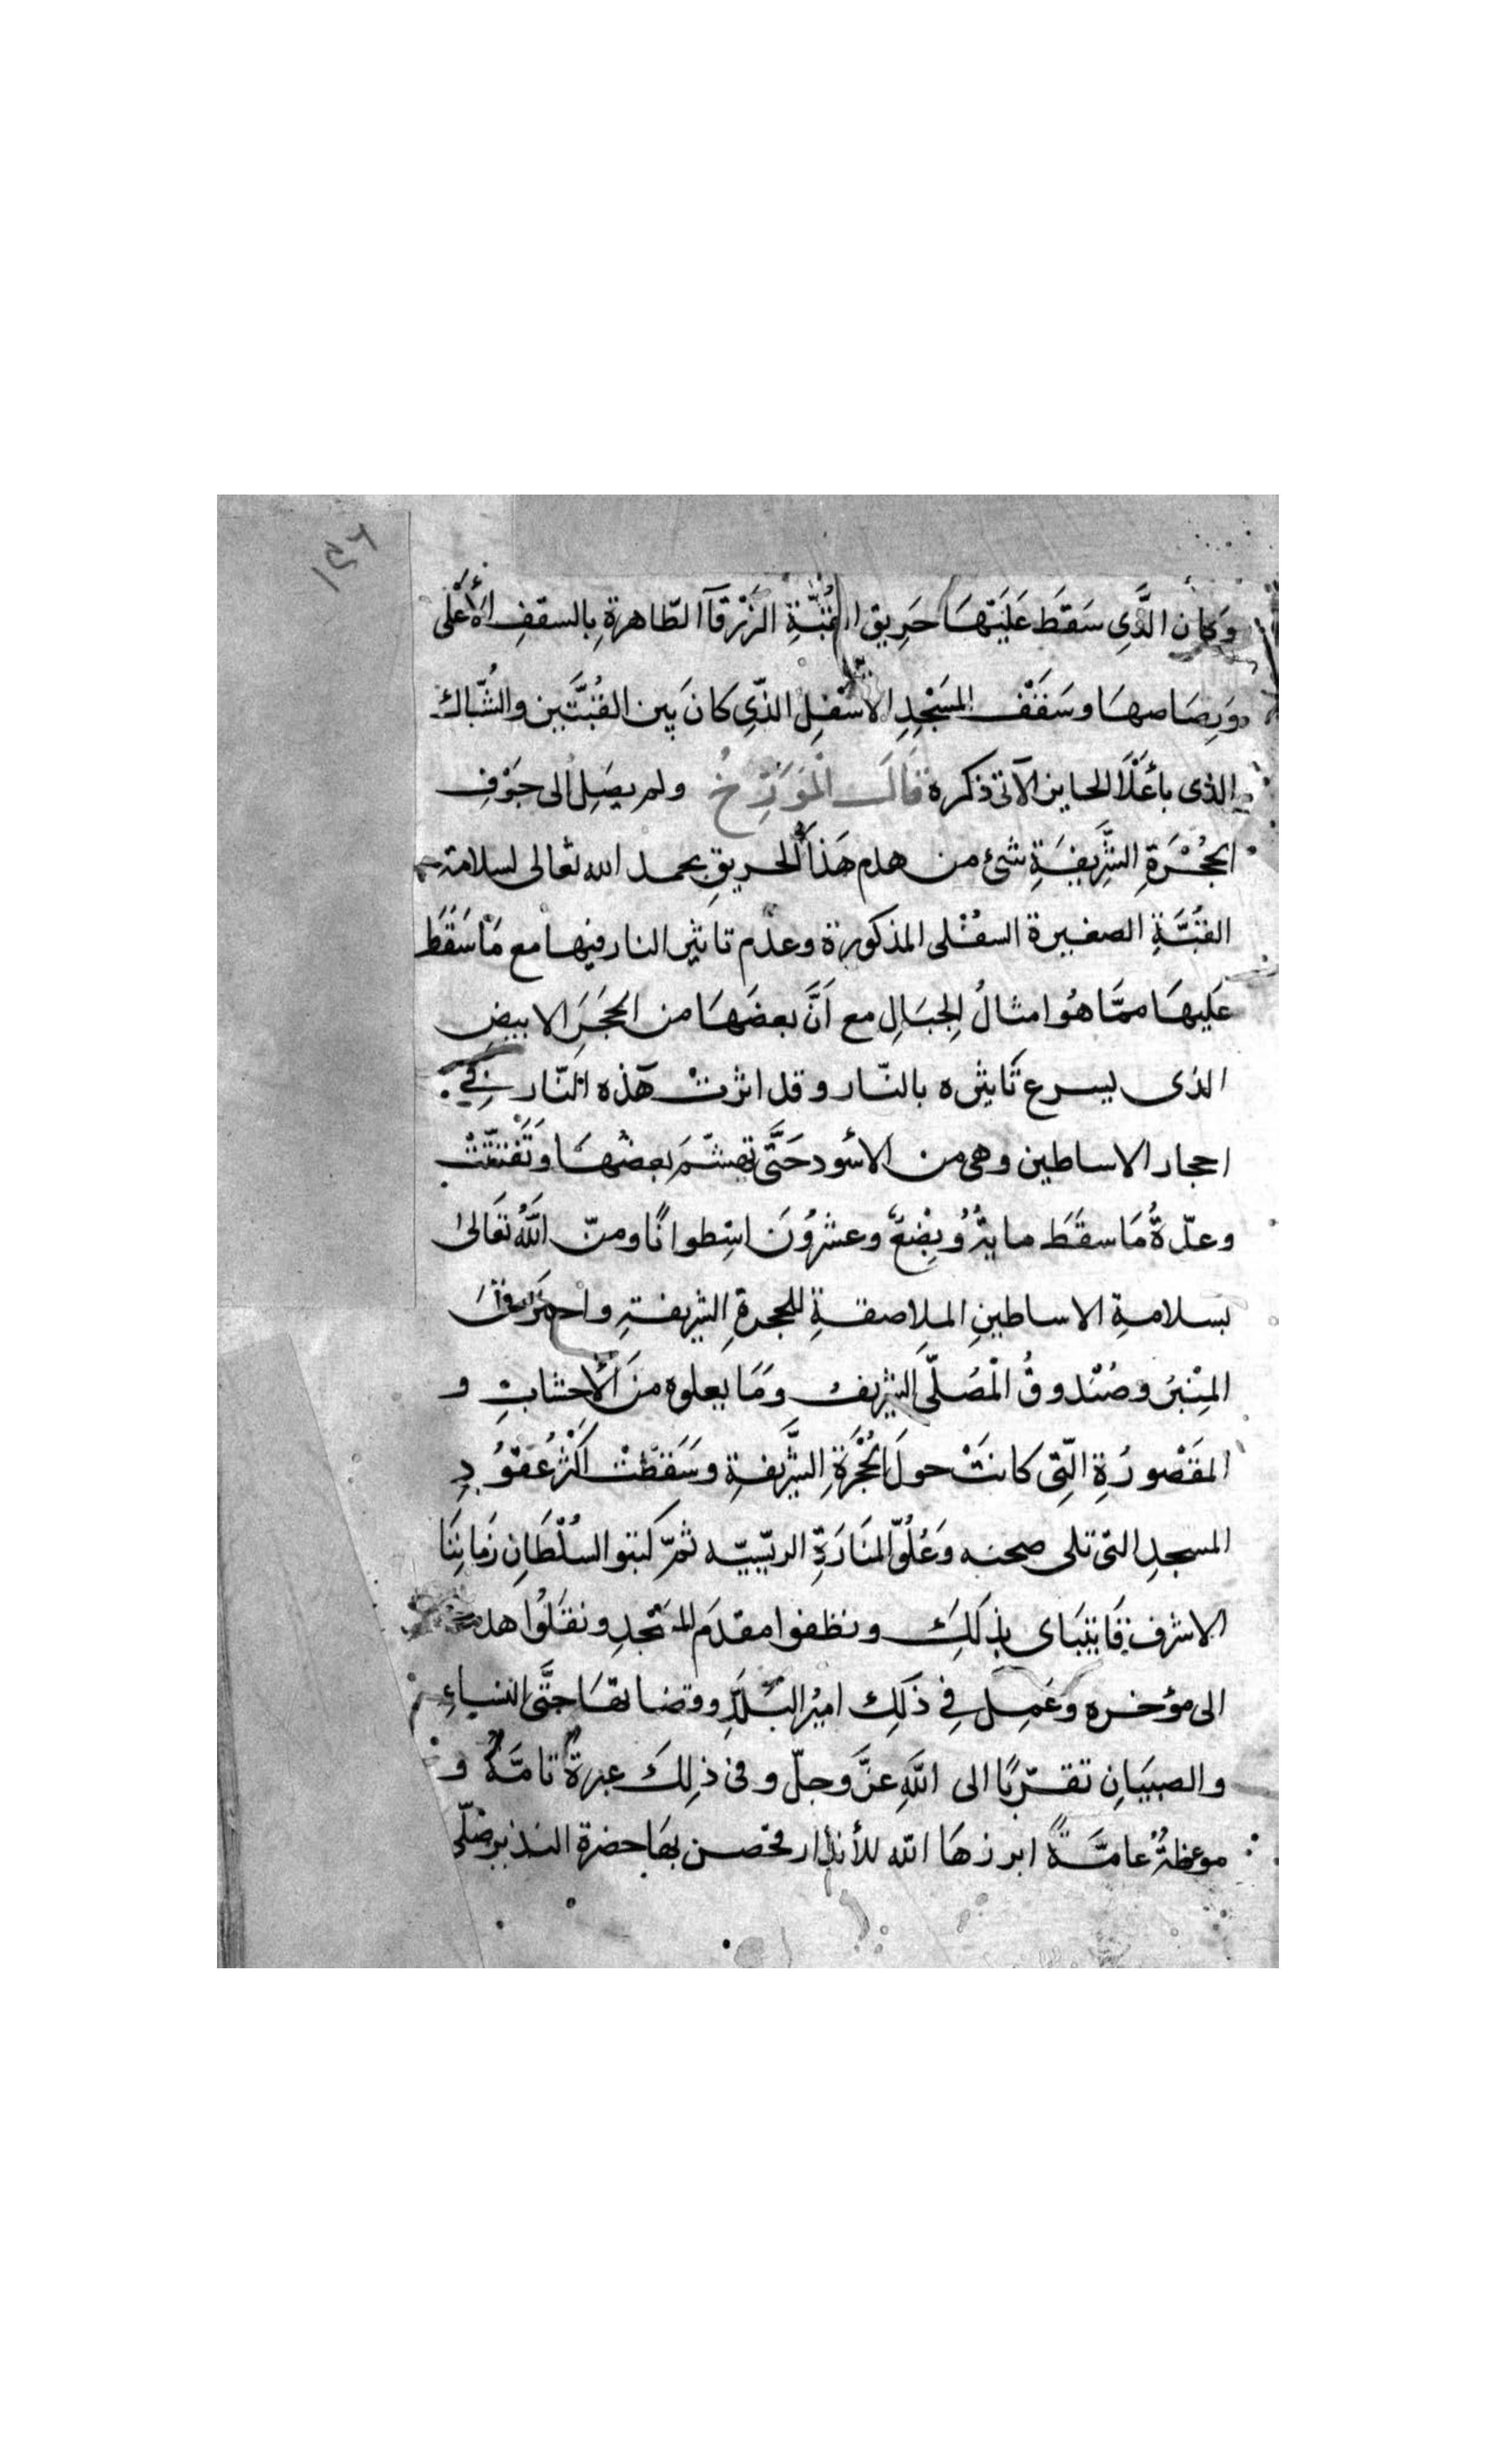 ١٥٦
وَكان الَّذِي سَقَطَ عَلَيْهَا حَرِيق القُبَّةِ الزَّرْقآ الظّاهرةِ بالسقفِ الأَعْلَى
وَرِصَاصهَا وسَقْف المَسْجِدِ الأَسْفِلِ الذّي كانَ بَين القُبَّتَين والشُّبّاك
الذى بأَعْلَا الحايز الآتى ذكره قَالَ الْمُوَرِّخُ ولم يصَِل الى جَوْفِ
الحُجْرَةِ الشَّرِيفَةِ شئ من هدم هَذا الحريقِ بحمد الله تعالى لسلامة
القُبَّةِ الصغيرة السفْلى المذكورة وعدَم تاثير النار فيها مع مَا سَقَطَ
عَليهَا ممَّا هُو امثالُ الجبَالِ مع اَنَّ بعضَهَا من الحَجَرِ الابيضِ
الذى يسرع تَاثيره بالنّار وقد اثرتْ هَذه النّار فِي
احجار الاساطين وهى من الأسود حَتَّى تهشّمَ بعضهَا وَتَفَتَّتْ
وعدّةُ مَا سقَطَ مايةُ وبِضْعٌ وعشرُونَ اسِطوانًا ومنّ اللهُ تعَالىٰ
بسلامةِ الاساطينِ الملاصقةِ للحجرةِ الشريفةِ واحترق
المِنْبرُ وصُنْدوقُ الْمُصَلّى الشريف وَمَا يعلوه منَ الأخشابِ و
المقَصْورُةِ الّتِى كانَتْ حولَ الحُجْرَةِ الشَّريفةِ وسَقَطَتْ اَكثرُ عُقوُدِ
المسجدِ التى تلى صحنه وَعُلُوّ المنَارَةِ الريّسيّه ثمّ كتبو السُلْطَانِ زَمَاننَا
الاشرف قَايتبَاى بذلكَِ ونظفوا مقدَم المسَجدِ ونقَلُوا هدمه
الى مؤخره وعَمِل فِي ذَلكِ اميرُ البَلَدِ وقضاتهَا حتَّى النساءِ
والصبيَانِ تقرّبًا الى اللهِ عزَّ وجلّ وفى ذلِكَ عبرةٌ تامَّةٌ و
موعظةٌ عامَّةً ابرزهَا الله للأنذار فخص بهَا حضرة النذير صَلّى